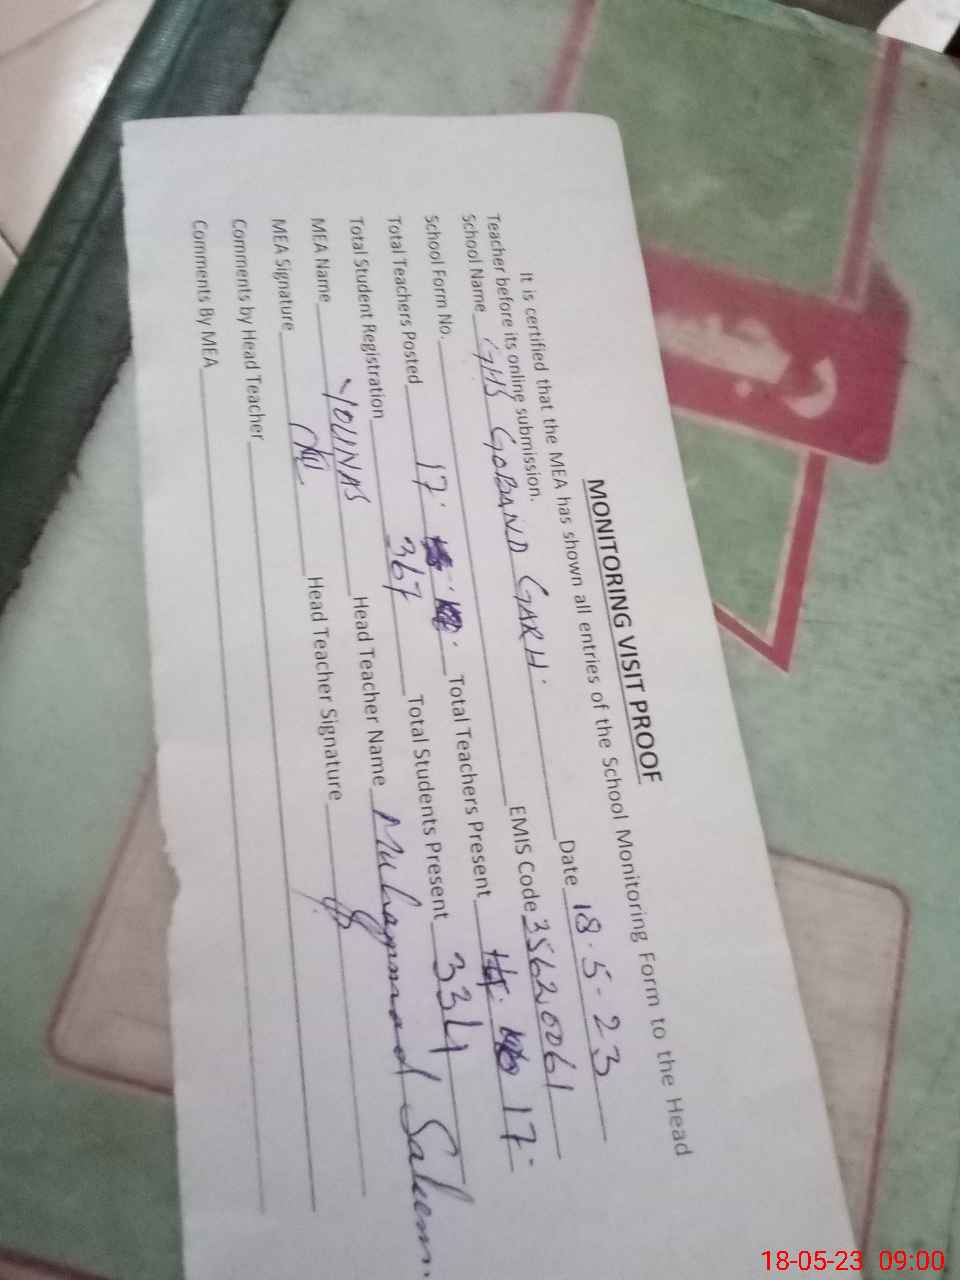 MONITORING VISIT PROOF
It is certified that the MEA has shown all entries of the School Monitoring Form to the Head
Teacher before its online submission.
School Name GHS GOBAND GARH. Date 18.5-23
School Form No. EMIS Code 35620061
Total Teachers Posted 17. Total Teachers Present 17.
Total Student Registration 367 Total Students Present 334
MEA Name YOUNAS Head Teacher Name Muhammad Saleem.
MEA Signature Head Teacher Signature
Comments by Head Teacher
Comments By MEA
رجسٹر
18-05-23 09:00